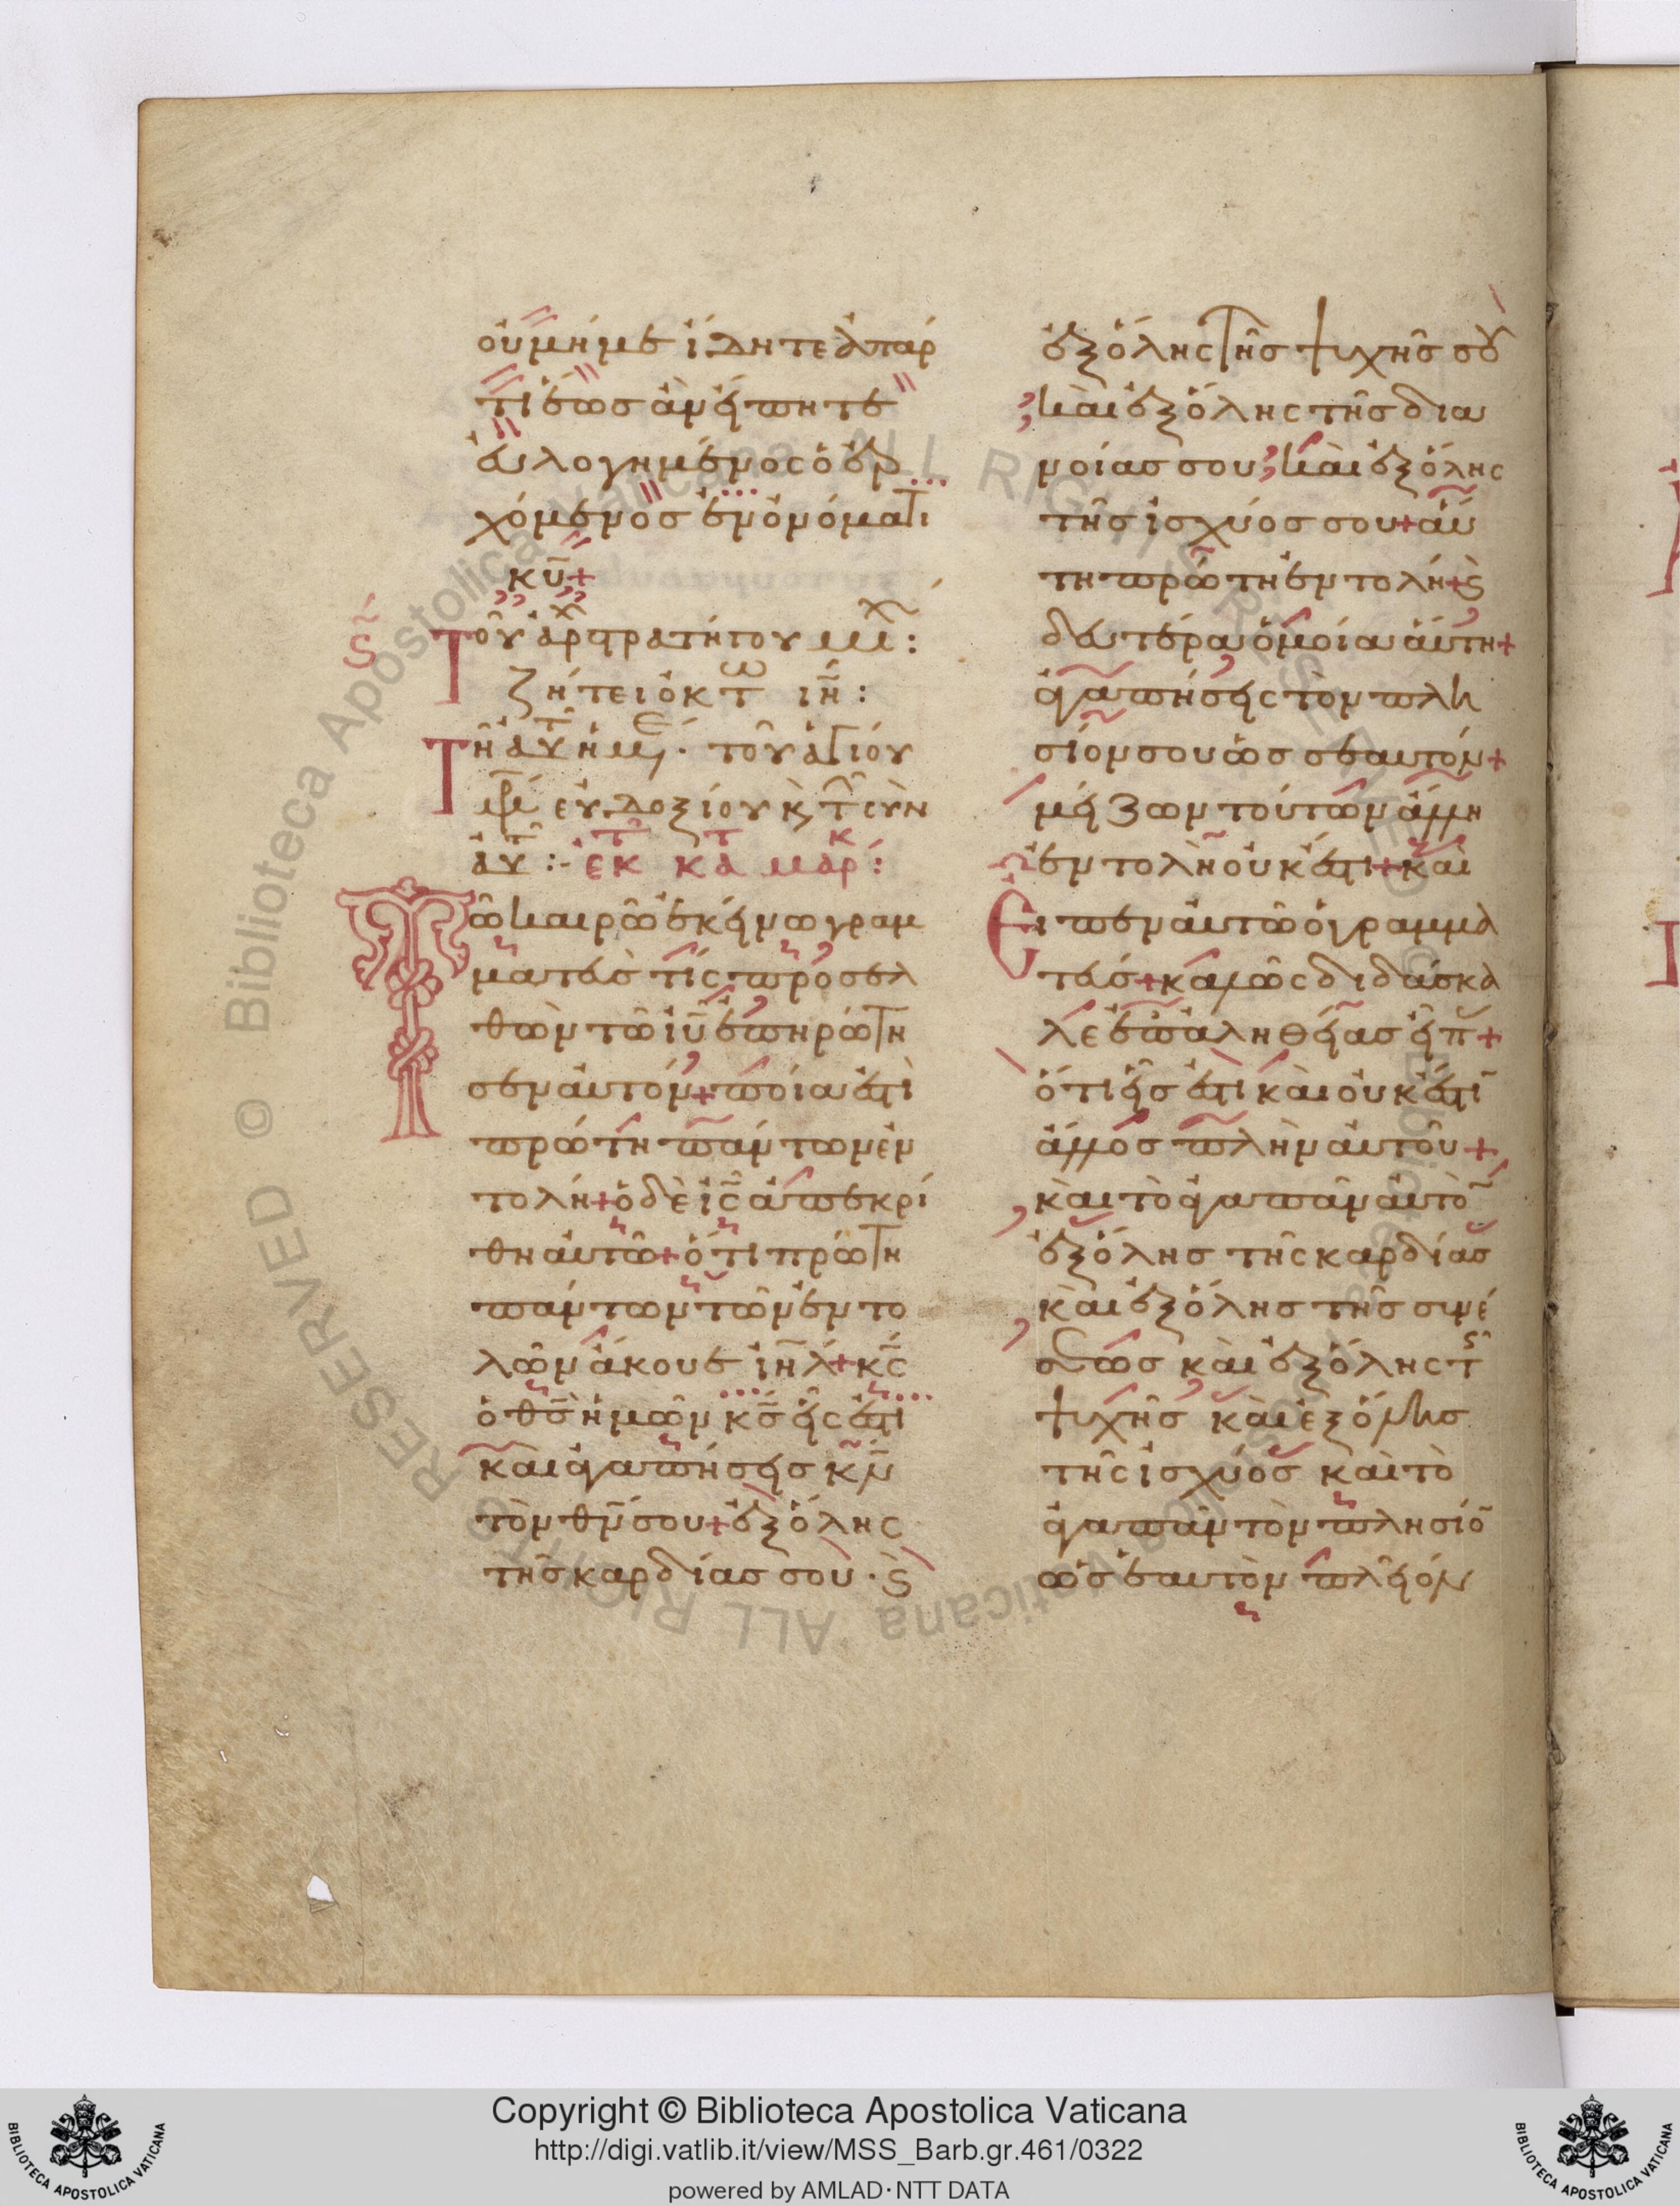 οὐ μή με ἴδητε ἀπάρ
τι ἕως ἂν εἴπητε
εὐλογημένος ὁ ἐρ
χόμενος ἐν ὀνόματι
κ̅υ̅+
Τοῦ ἀρχιστρατήγου μιχ:
ζήτει ὀκτω ιη:
Τῆ αυτ ἡμε. τοῦ ἁγίου
μρ εὐδοξίου κ τ σὺν
αυτ :- ἐκ τ κατ μάρκ:
Τῶ καιρῶ ἐκείνω γραμ
ματεύς τίς προσελ
θὼν τῶ ι̅υ̅ ἐπηρώτη
σεν αὐτόν+ ποία ἐστὶ
πρώτη πάντων ἐν
τολή+ ὁ δὲ ι̅ς̅ ἀπεκρί
θη αὐτῶ+ ὅτι πρώτη
πάντων τῶν ἐντο
λῶν ἄκουε ι̅η̅λ̅+ κ̅ς̅
ὁ θ̅ς̅ ἡμῶν κ̅ς̅ εἷς ἐστι
καὶ ἀγαπήσεις κ̅ν̅
τὸν θ̅ν̅ σου+ ἐξ ὅλης
τῆς καρδίας σου · ϗ
ἐξ ὅλης τῆς ψυχῆς σου
καὶ ἐξ ὅλης τῆς δια
νοίας σου, καὶ ἐξ ὅλης
τῆς ἰσχύος σου+ αὕ
τη πρώτη ἐντολή+ ϗ
δευτέρα ὁμοία αὕτη+
ἀγαπήσεις τὸν πλη
σίον σου ὡς σεαυτόν+
μείζων τούτων ἄλλη
ἐντολὴ οὐκ ἔστι+ καὶ
Εἶπεν αὐτῶ ὁ γραμμα
τεύς+ καλῶς διδάσκα
λε ἐπ ἀληθείας εἶπ+
ὅτι εἷς ἐστι καὶ οὐκ ἔστι
ἄλλος πλὴν αὐτοῦ+
καὶ τὸ ἀγαπᾶν αὐτὸ̅
ἐξ ὅλης τῆς καρδίας
καὶ ἐξ ὅλης τῆς συνέ
σεως καὶ ἐξ ὅλης τ
ψυχῆς καὶ ἐξ ὅλης
τῆς ἰσχύος καὶ τὸ
ἀγαπᾶν τὸν πλησίο̅
ὡς ἑαυτὸν πλεῖόν
Copyright © Biblioteca Apostolica Vaticana
http://digi.vatlib.it/view/MSS_Barb.gr.461/0322
powered by AMLAD·NTT DATA